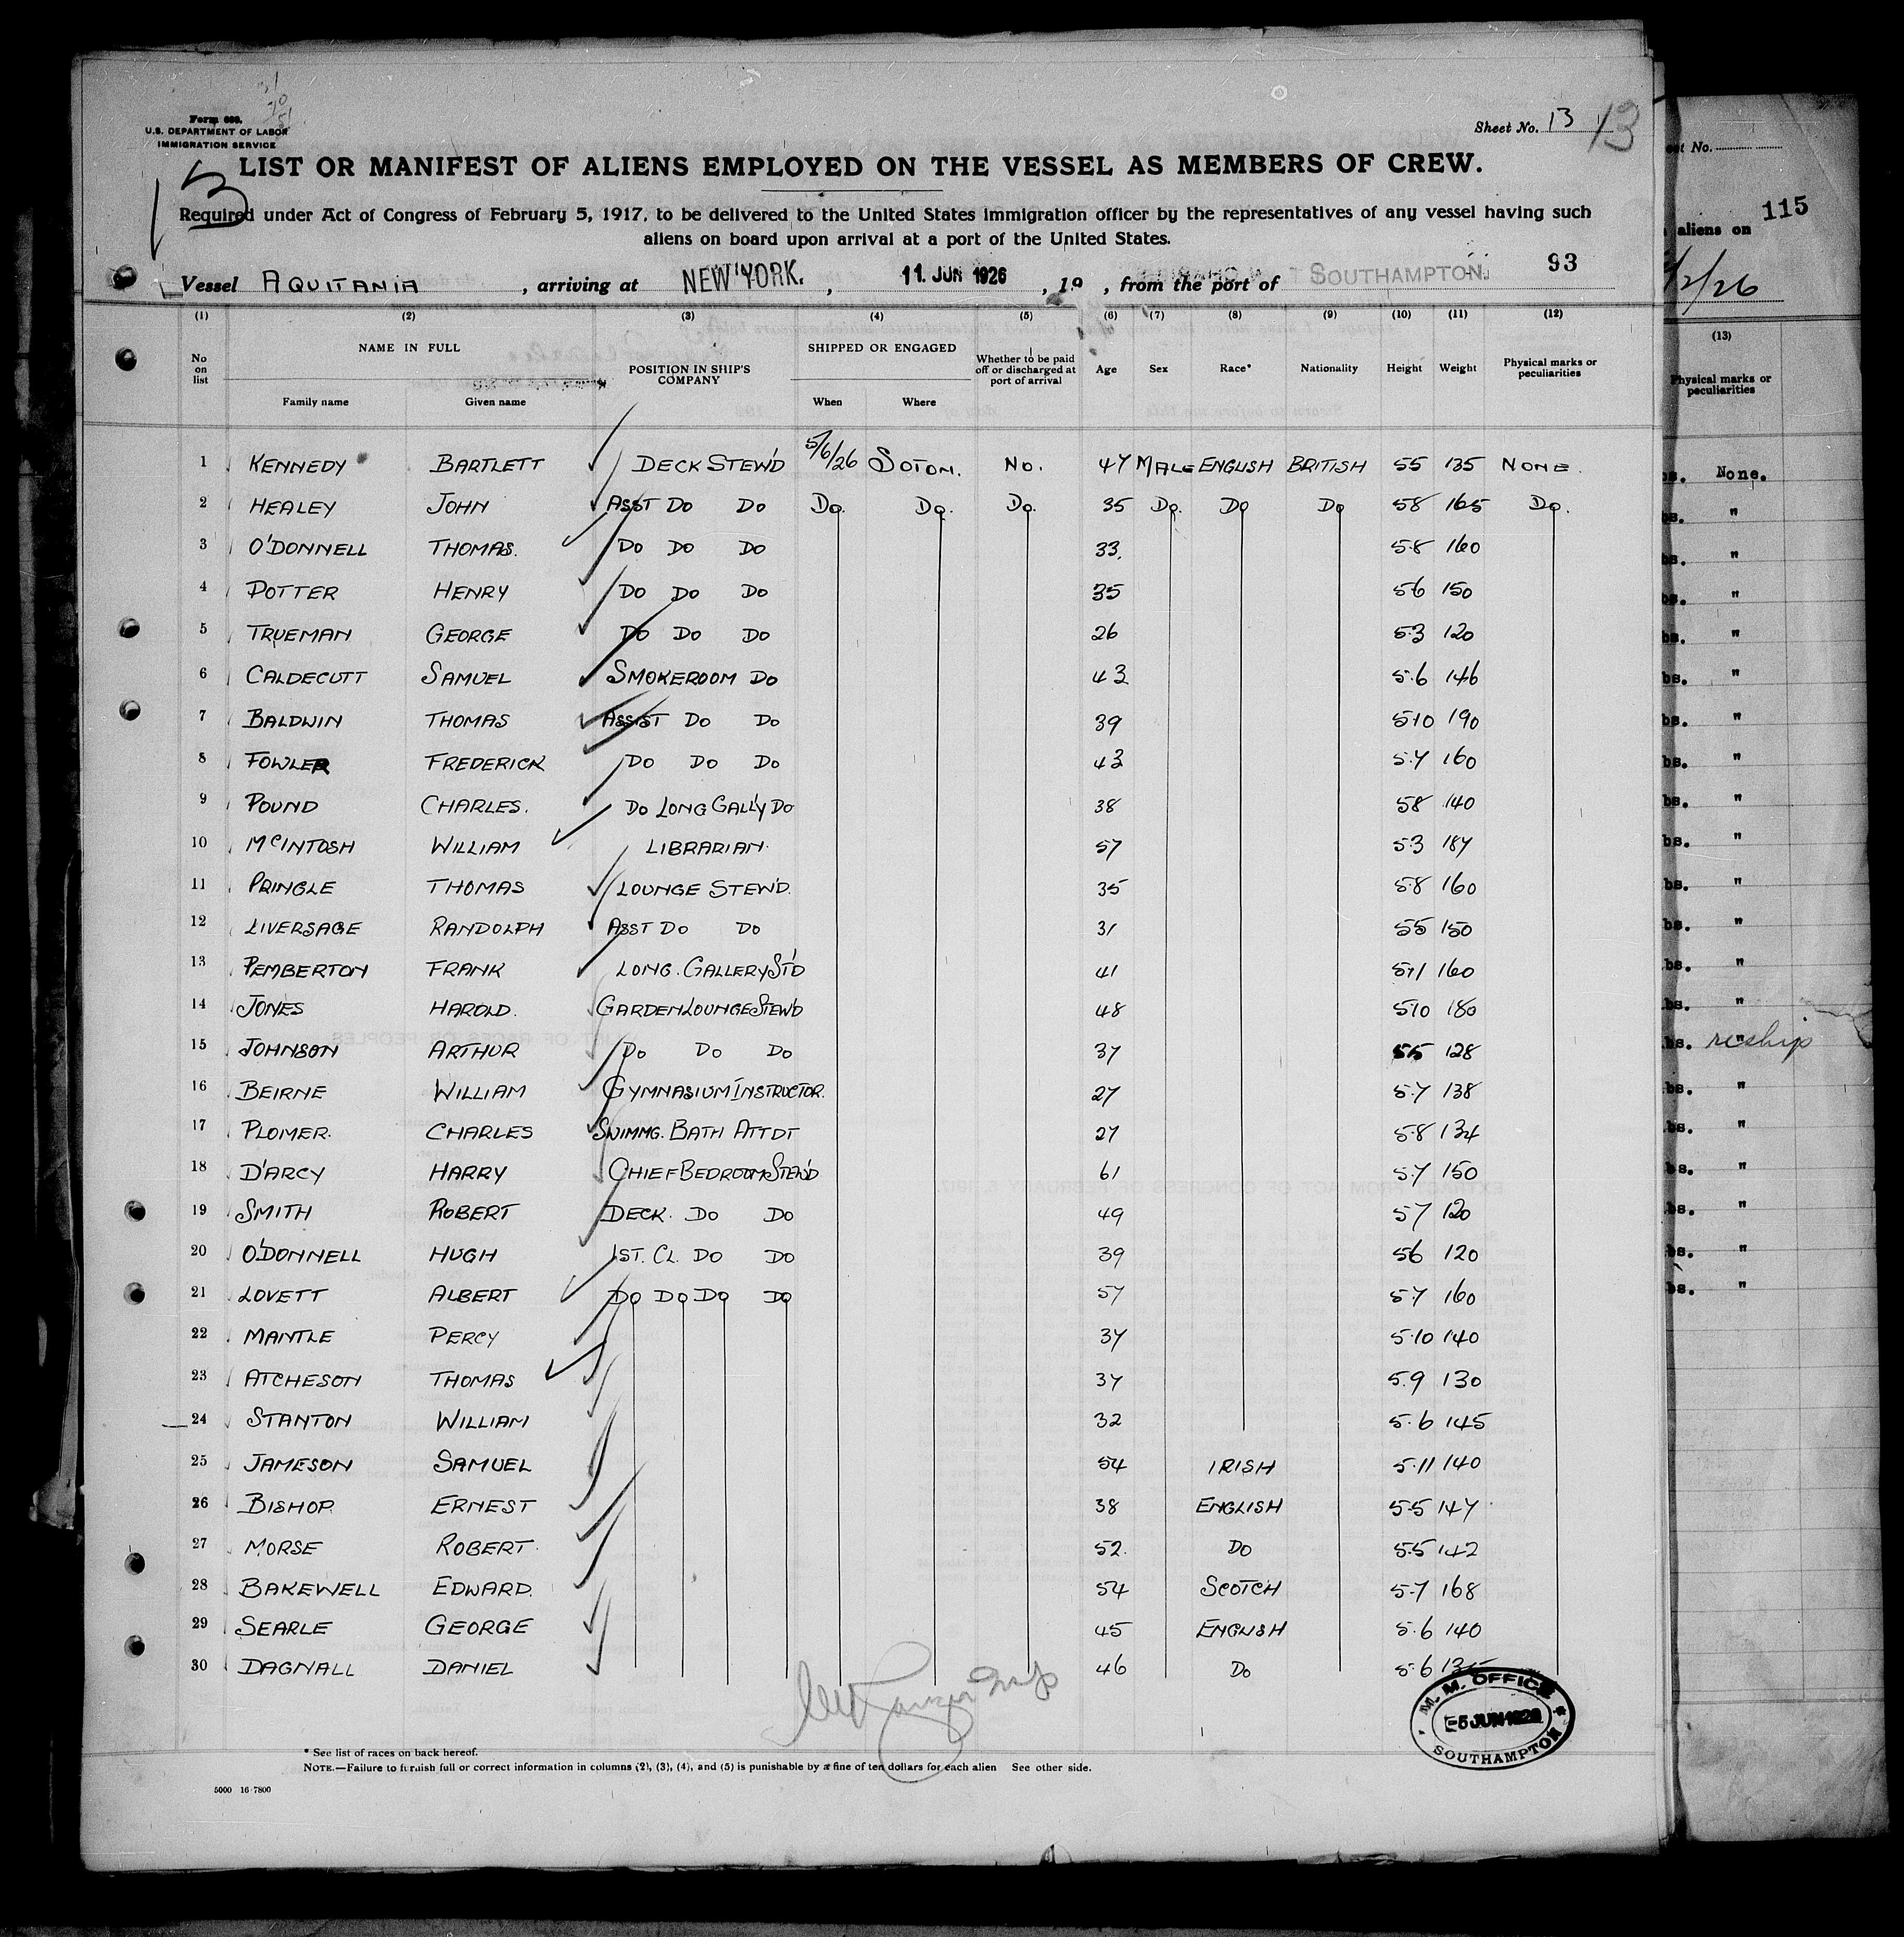 Form 686.
U.S. DEPARTMENT OF LABOR
IMMIGRATION SERVICE
Sheet No. 13 13
LIST OR MANIFEST OF ALIENS EMPLOYED ON THE VESSEL AS MEMBERS OF CREW.
13
Required under Act of Congress of February 5, 1917, to be delivered to the United States immigration officer by the representatives of any vessel having such
aliens on board upon arrival at a port of the United States.
Vessel AQUITANIA, arriving at NEW YORK., 11. JUN 1926, 19 , from the port of SOUTHAMPTON. 93
(1) (2) (3) (4) (5) (6) (7) (8) (9) (10) (11) (12)
No on list NAME IN FULL Family name Given name POSITION IN SHIP'S COMPANY SHIPPED OR ENGAGED When Where Whether to be paid off or discharged at port of arrival Age Sex Race* Nationality Height Weight Physical marks or peculiarities
1 KENNEDY BARTLETT DECK STEW'D 5/6/26 SOTON. NO. 47 MALE ENGLISH BRITISH 55 135 NONE.
2 HEALEY JOHN ASST DO DO DO. DO. DO. 35 DO. DO DO 58 165 DO.
3 O'DONNELL THOMAS. DO DO DO 33. 5.8 160
4 POTTER HENRY DO DO DO 35 56 150
5 TRUEMAN GEORGE DO DO DO 26 5.3 120
6 CALDECUTT SAMUEL SMOKEROOM DO 43 5.6 146
7 BALDWIN THOMAS ASSIST DO DO 39 5.10 190
8 FOWLER FREDERICK DO DO DO 43 5.7 160
9 POUND CHARLES. DO LONG GALL'Y DO 38 58 140
10 McINTOSH WILLIAM LIBRARIAN. 57 5.3 187
11 PRINGLE THOMAS LOUNGE STEW'D. 35 5.8 160
12 LIVERSAGE RANDOLPH ASST DO DO 31 55 150
13 PEMBERTON FRANK LONG. GALLERY ST'D 41 5.11 160
14 JONES HAROLD. GARDEN LOUNGE STEW'D 48 5.10 180
15 JOHNSON ARTHUR DO DO DO 37 55 128
16 BEIRNE WILLIAM GYMNASIUM INSTRUCTOR. 27 5.7 138
17 PLOMER. CHARLES SWIMMG. BATH ATTDT 27 5.8 134
18 D'ARCY HARRY CHIEF BEDROOM STEW'D 61 5.7 150
19 SMITH ROBERT DECK. DO DO 49 57 120
20 O'DONNELL HUGH 1ST. CL. DO DO 39 56 120
21 LOVETT ALBERT DO DO DO DO 57 5.7 160
22 MANTLE PERCY 37 5.10 140
23 ATCHESON THOMAS 37 5.9 130
24 STANTON WILLIAM 32 5.6 145
25 JAMESON SAMUEL 54 IRISH 5.11 140
26 BISHOP. ERNEST 38 ENGLISH 5.5 147
27 MORSE ROBERT. 52. DO 5.5 142
28 BAKEWELL EDWARD. 54 SCOTCH 5.7 168
29 SEARLE GEORGE 45 ENGLISH 5.6 140
30 DAGNALL DANIEL 46 DO 5.6
M. M. OFFICE
5 JUN 1926
SOUTHAMPTON
* See list of races on back hereof.
NOTE.—Failure to furnish full or correct information in columns (2), (3), (4), and (5) is punishable by a fine of ten dollars for each alien See other side.
5000 16-7800
No.
115
aliens on
2/26
(13)
Physical marks or peculiarities
bs. None.
bs. "
bs. "
bs. "
bs. "
bs. "
bs. "
bs. "
bs. "
bs. "
bs. "
bs. "
bs. "
bs. "
bs. " reship
bs. "
bs. "
bs. "
bs. "
bs. "
bs. "